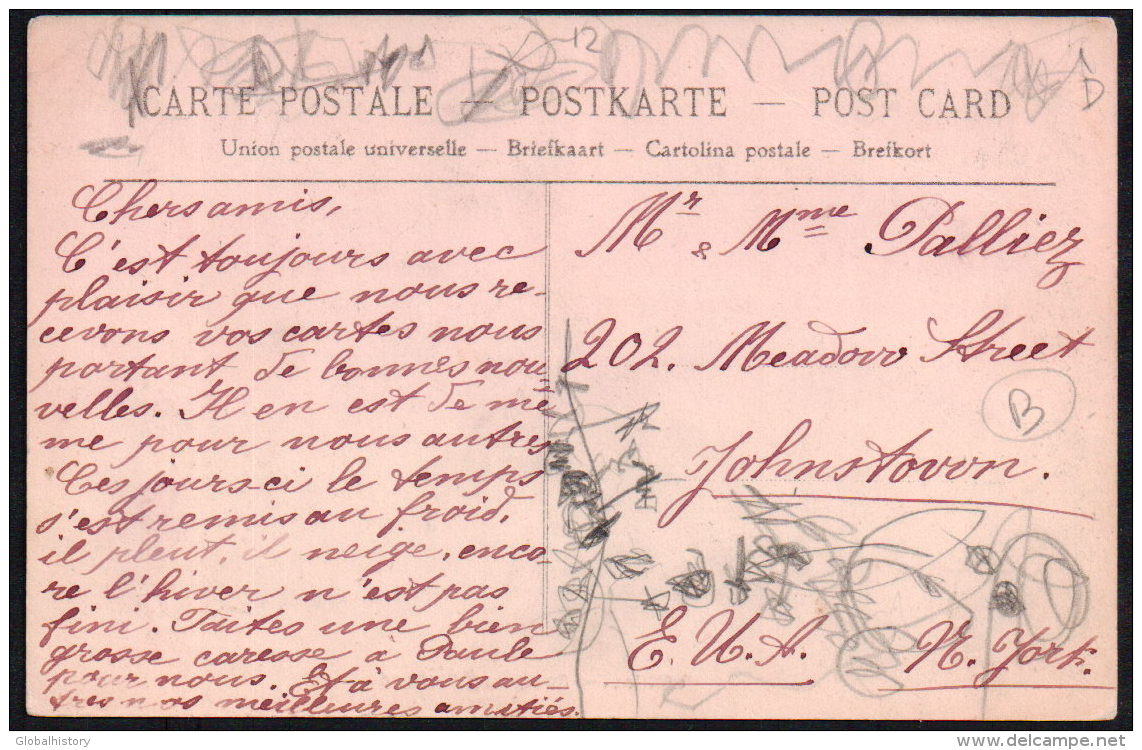 12
D
CARTE POSTALE — POSTKARTE — POST CARD
Union postale universelle — Briefkaart — Cartolina postale — Brefkort
Chers amis,
C'est toujours avec
plaisir que nous re-
cevons vos cartes nous
portant de bonnes nou-
velles. Il en est de mê
me pour nous autres
Ces jours-ci le temps
s'est remis au froid,
il pleut, il neige, enco-
re l'hiver n'est pas
fini. Faites une bien
grosse caresse à Paule
pour nous. Et à vous au-
tres nos meilleures amitiés.
Mr & Mme Palliez
202. Meadow Street
B
Johnstown.
E. U. A. N. York.
Globalhistory